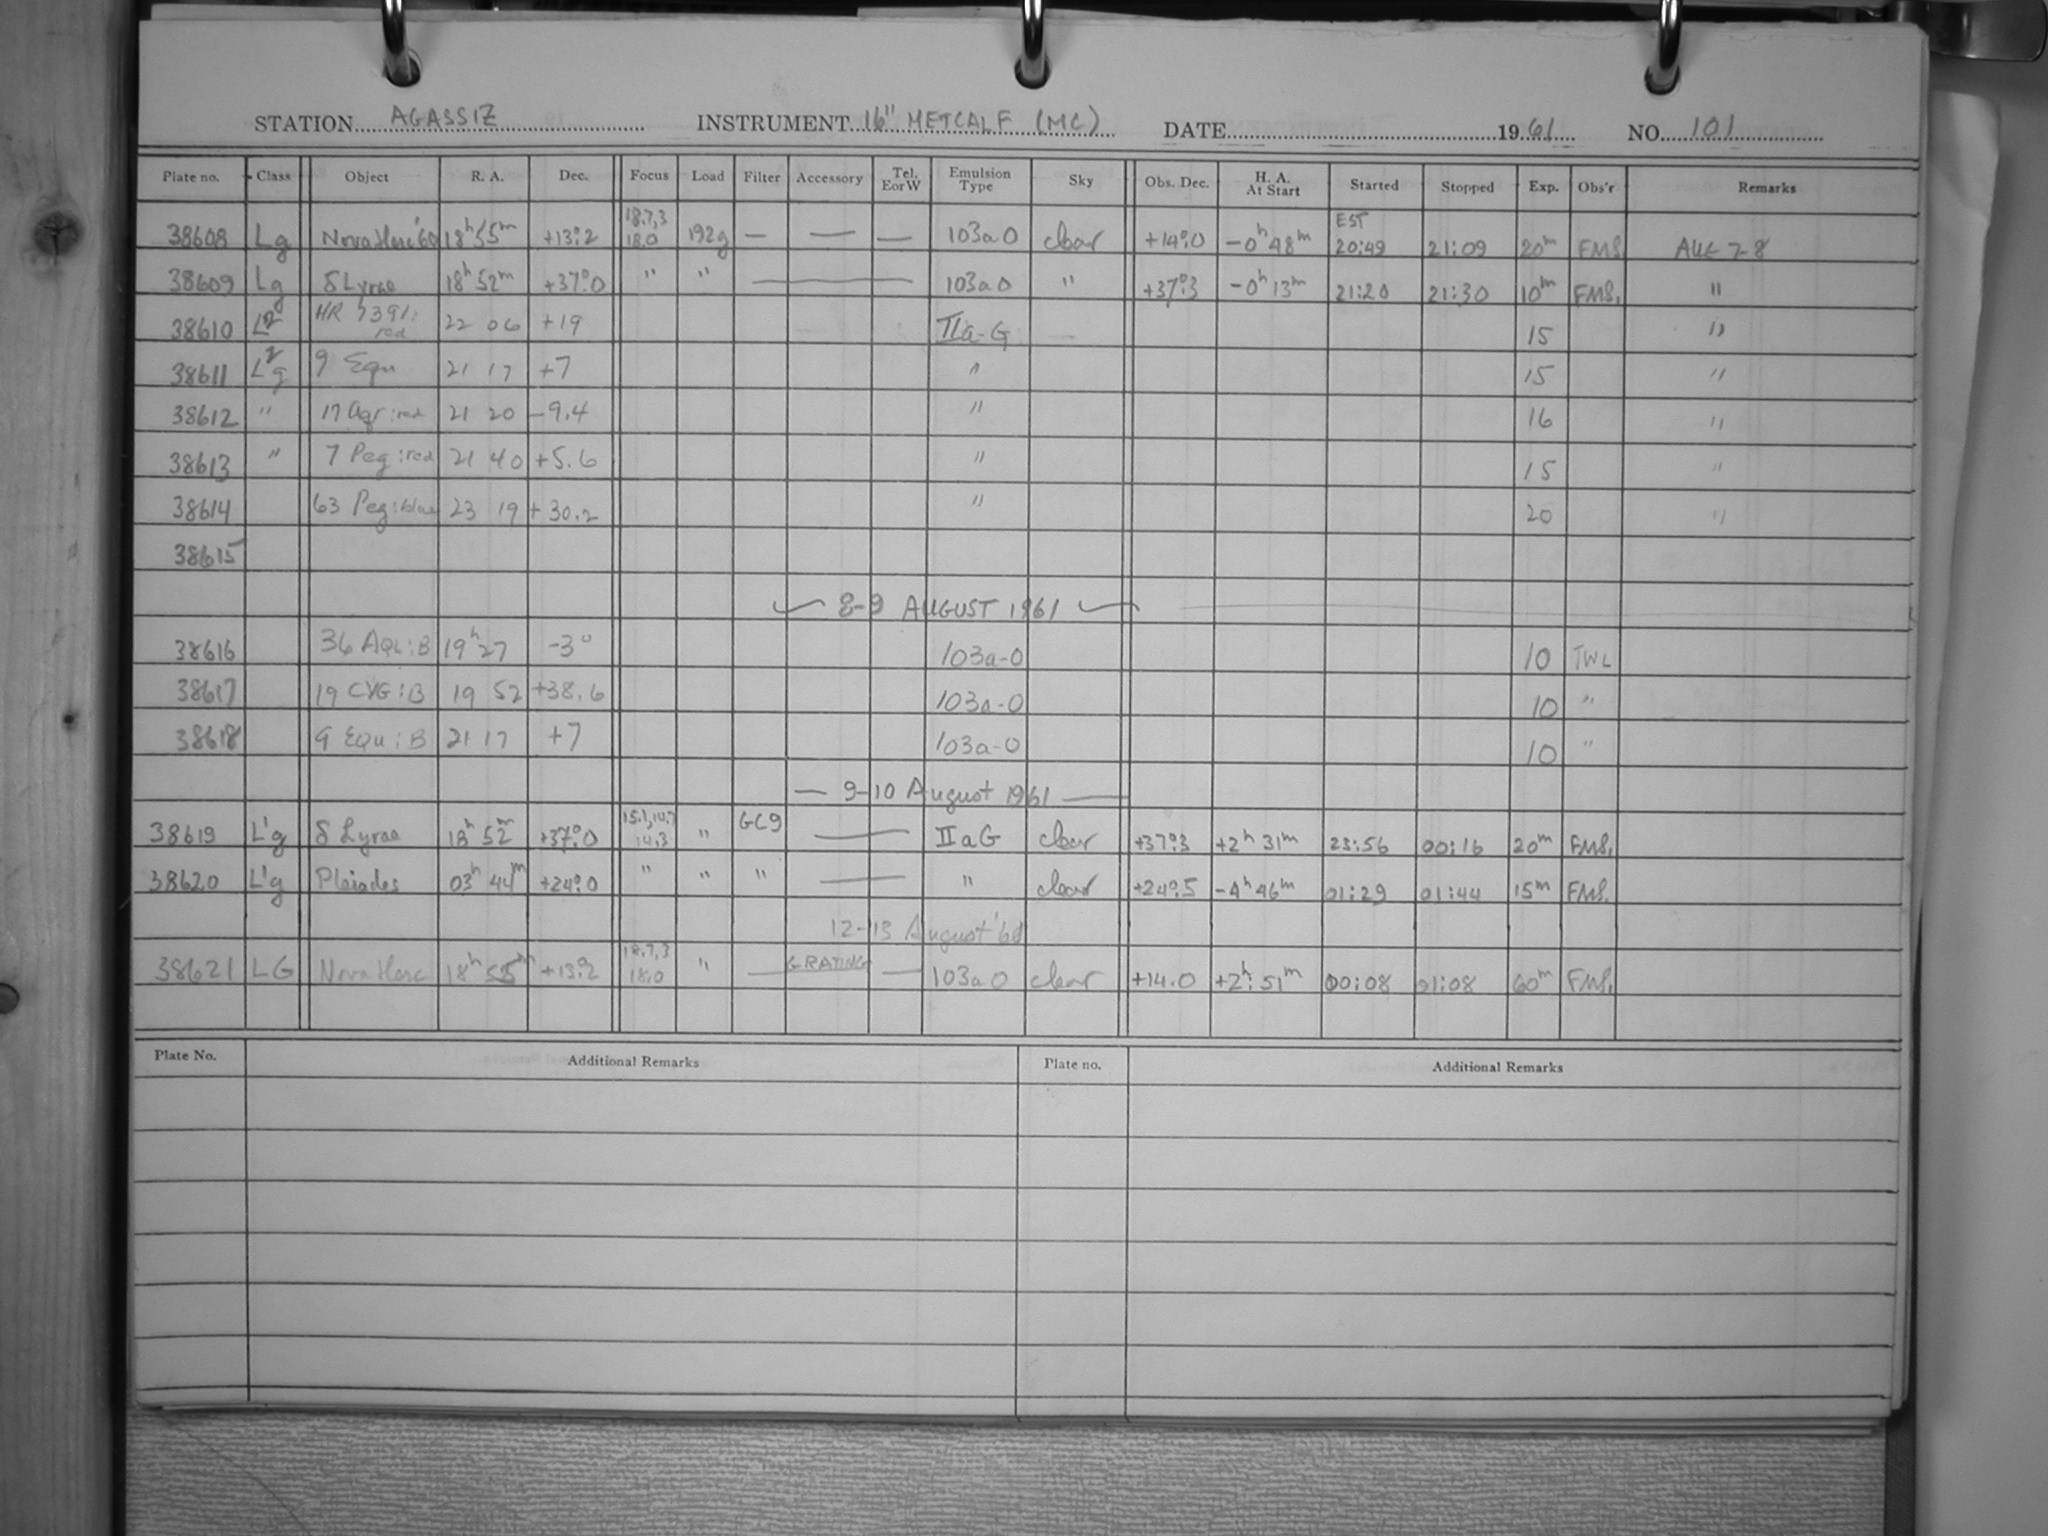 STATION AGASSIZ INSTRUMENT 16" METCALF (MC) DATE 1961 NO. 101
Plate no. Class Object R. A. Dec. Focus Load Filter Accessory Tel. E or W Emulsion Type Sky Obs. Dec. H. A. At Start Started Stopped Exp. Obs'r Remarks
38608 Lg Nova Herc '60 18h 55m +13°.2 18.7,3 18.0 192g — — — 103aO clear +14°.0 -0h 48m EST 20:49 21:09 20m FMS. AUG 7-8
38609 Lg δ Lyrae 18h 52m +37°.0 " " — 103aO " +37°.3 -0h 13m 21:20 21:30 10m FMS. "
38610 HR 8391: red 22 06 +19 IIa-G 15 "
38611 L2g 9 Equ 21 17 +7 " 15 "
38612 " 17 Aqr: red 21 20 -9.4 " 16 "
38613 " 7 Peg: red 21 40 +5.6 " 15 "
38614 63 Peg: blue 23 19 +30.2 " 20 "
38615
8-9 AUGUST 1961
38616 36 AQL: B 19h 27 -3° 103a-O 10 TWL
38617 19 CYG: B 19 52 +38.6 103a-O 10 "
38618 9 EQU: B 21 17 +7 103a-O 10 "
— 9-10 August 1961 —
38619 L'g δ Lyrae 18h 52m +37°.0 15.1,14.7 14.3 " GC9 — IIaG clear +37°.3 +2h 31m 23:56 00:16 20m FMS.
38620 L'g Pleiades 03h 44m +24°.0 " " " — " clear +24°.5 -4h 46m 01:29 01:44 15m FMS.
12-13 August '61
38621 LG Nova Herc 18h 55m +13°.2 18.7,3 18.0 " — GRATING — 103aO clear +14.0 +2h 51m 00:08 01:08 60m FMS.
Plate No. Additional Remarks Plate no. Additional Remarks